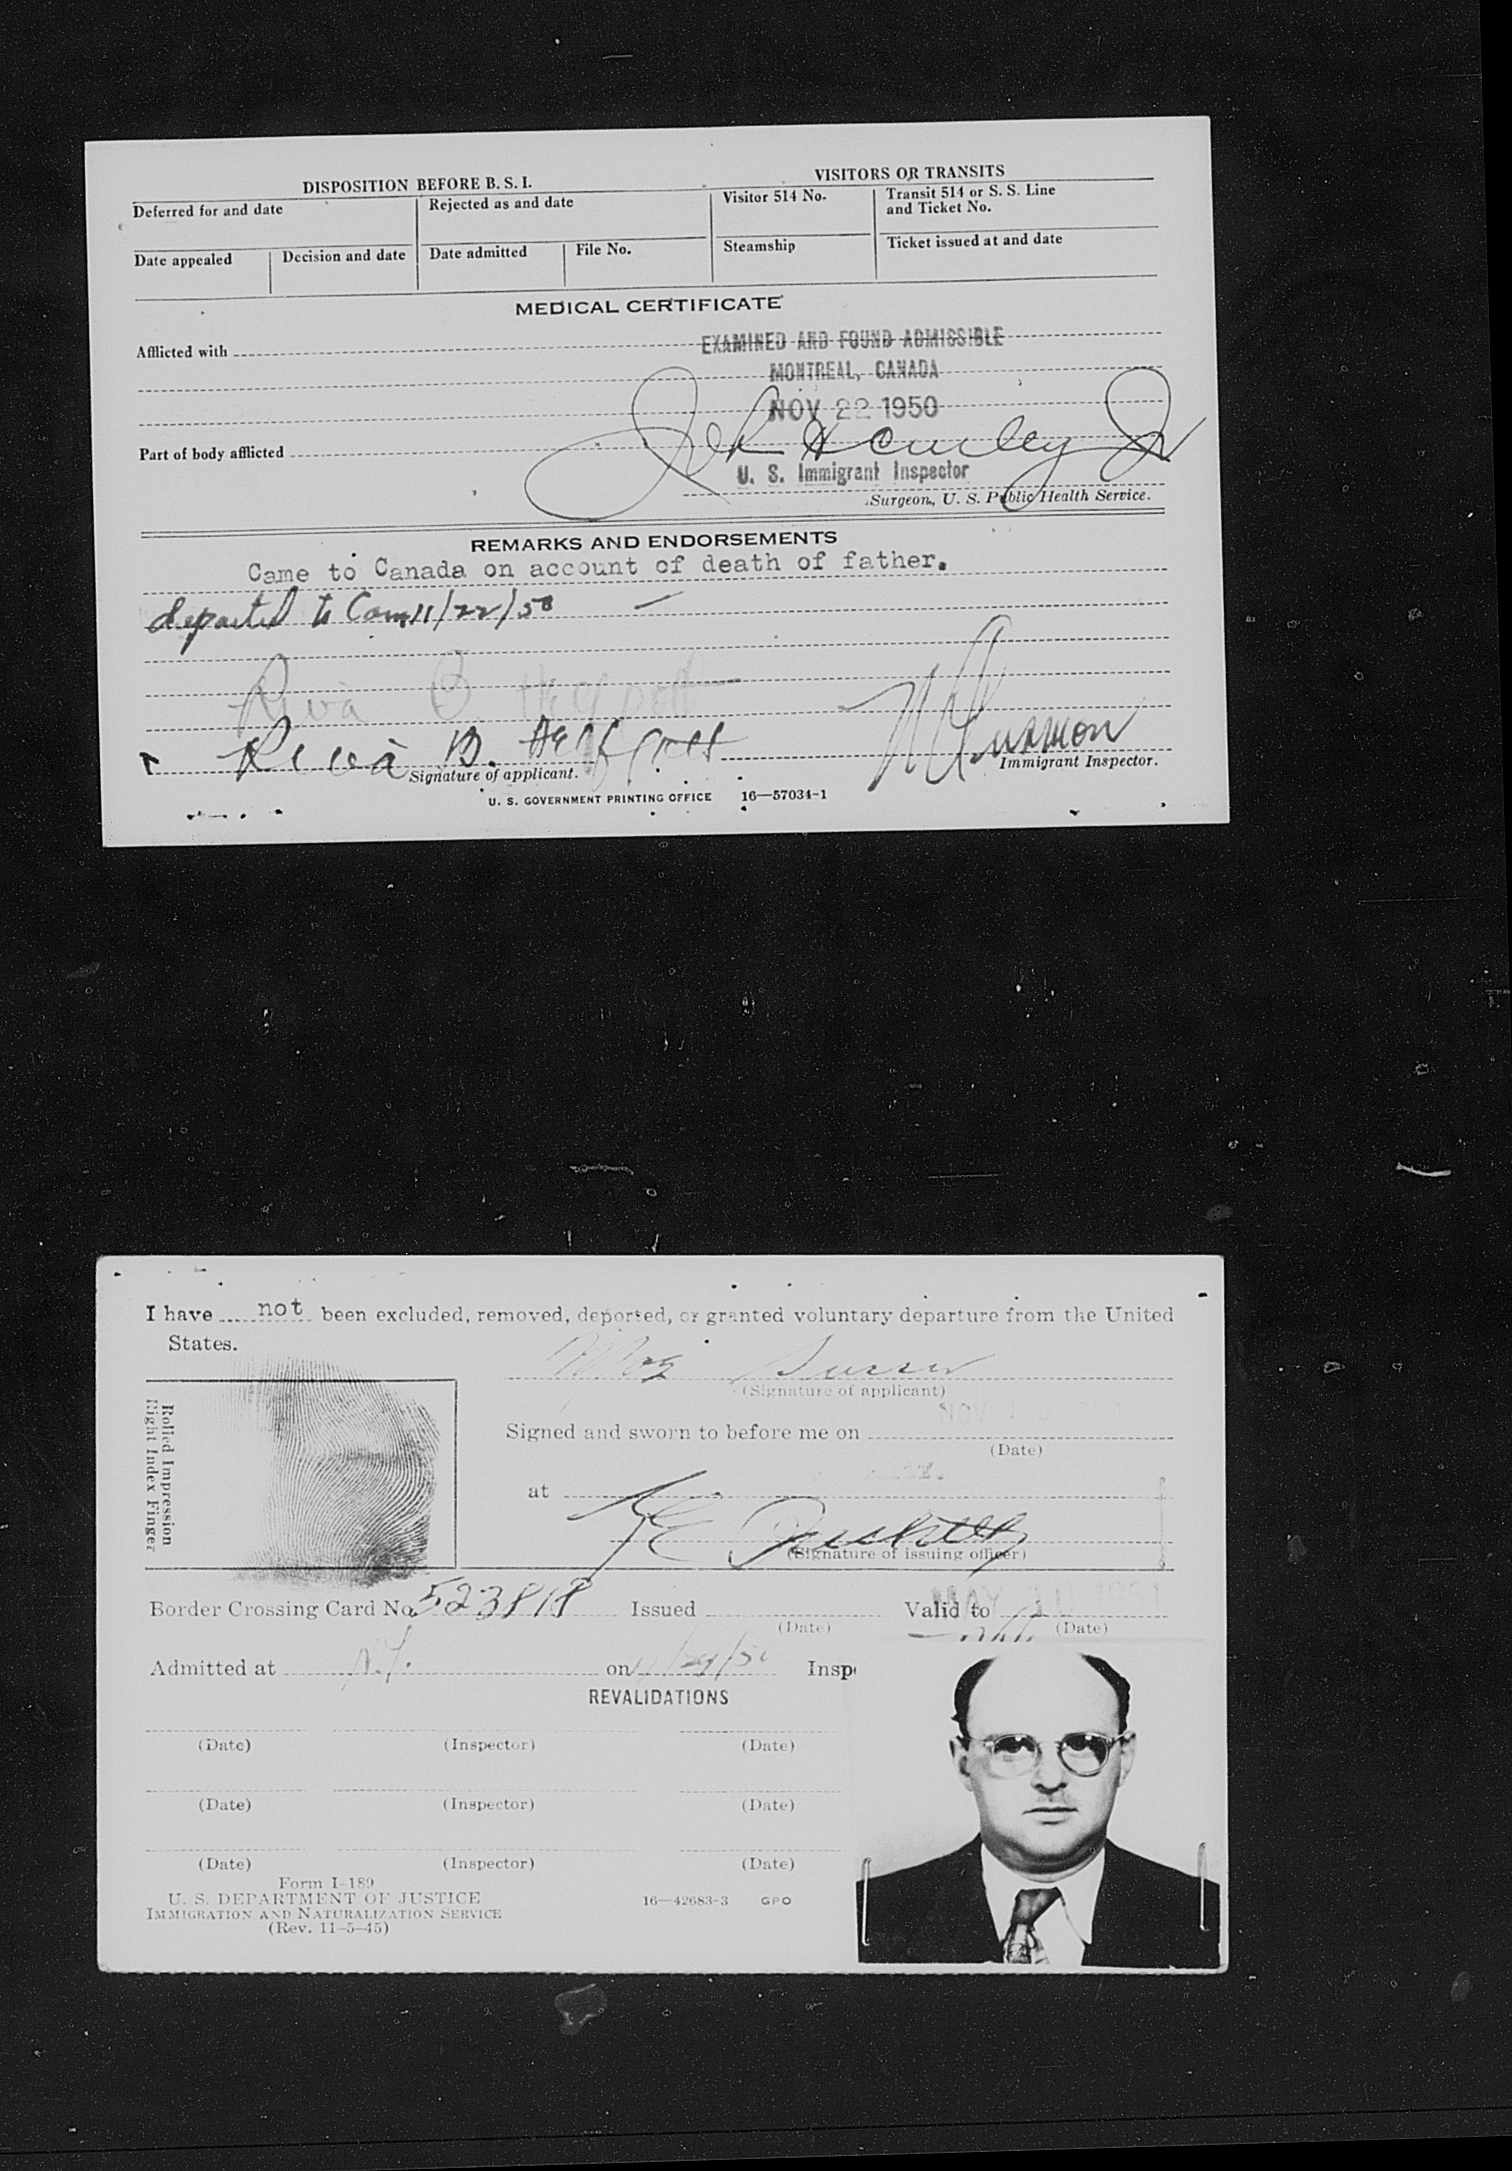 DISPOSITION BEFORE B. S. I.
VISITORS OR TRANSITS
Deferred for and date
Rejected as and date
Visitor 514 No.
Transit 514 or S. S. Line
and Ticket No.
Date appealed
Decision and date
Date admitted
File No.
Steamship
Ticket issued at and date
MEDICAL CERTIFICATE
Afflicted with
EXAMINED AND FOUND ADMISSIBLE
MONTREAL, CANADA
NOV 22 1950
Part of body afflicted
U. S. Immigrant Inspector
Surgeon, U. S. Public Health Service.
REMARKS AND ENDORSEMENTS
Came to Canada on account of death of father.
departed to Can 11/22/50
Riva B.
Riva B.
Signature of applicant.
Immigrant Inspector.
U. S. GOVERNMENT PRINTING OFFICE 16—57034-1
I have not been excluded, removed, deported, or granted voluntary departure from the United
States.
(Signature of applicant)
Rolled Impression
Right Index Finger
Signed and sworn to before me on
NOV
(Date)
at
(Signature of issuing officer)
Border Crossing Card No. 523818 Issued Valid to MAY 1951
(Date)
(Date)
Admitted at N.Y. on
REVALIDATIONS
(Date) (Inspector) (Date)
(Date) (Inspector) (Date)
(Date) (Inspector) (Date)
Form I-189
U. S. DEPARTMENT OF JUSTICE
IMMIGRATION AND NATURALIZATION SERVICE
(Rev. 11-5-45)
16—42683-3 GPO